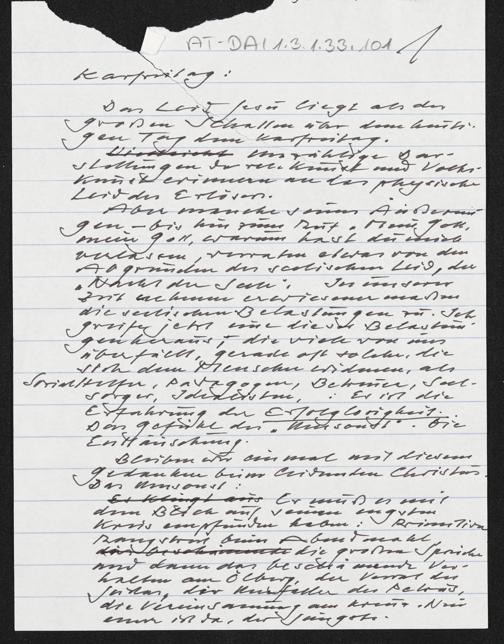 AT-DAI 1.3.1.33.101
Karfreitag:
Das Leid Jesu liegt als der
große Schatten über dem heuti-
gen Tag dem Karfreitag.
Vielleicht Unzählige Dar-
stellungen der Kunst und Volks-
kunst erinnern an das physische
Leid des Erlösers.
Aber manche seiner Äußerun-
gen – bis hin zum Ruf „Mein Gott,
mein Gott, warum hast du mich
verlassen, verraten etwas von den
Abgründen des seelischen Leid, der
„Nacht der Seele". In unserer
Zeit nehmen erwiesenermaßen
die seelischen Belastungen zu. Ich
greife jetzt eine dieser Belastun-
gen heraus, die viele von uns
überfällt, gerade oft solche, die
sich dem Menschen widmen, als
Sozialhelfer, Pädagogen, Betreuer, Seel-
sorger, Idealisten, : Es ist die
Erfahrung der Erfolglosigkeit.
Das Gefühl des „Umsonst". Die
Enttäuschung.
Bleiben wir einmal mit diesem
Gedanken beim leidenden Christus.
Das Umsonst.
Es klingt aus Er muß es mit
dem Blick auf seinen engsten
Kreis empfunden haben: Primitiver
Rangstreit beim Abendmahl
die großen Sprüche
und dann das beschämende Ver-
halten am Ölberg, der Verrat des
Judas, der des Petrus,
die Vereinsamung am Kreuz. Nur
einer ist da, der Jüngste.